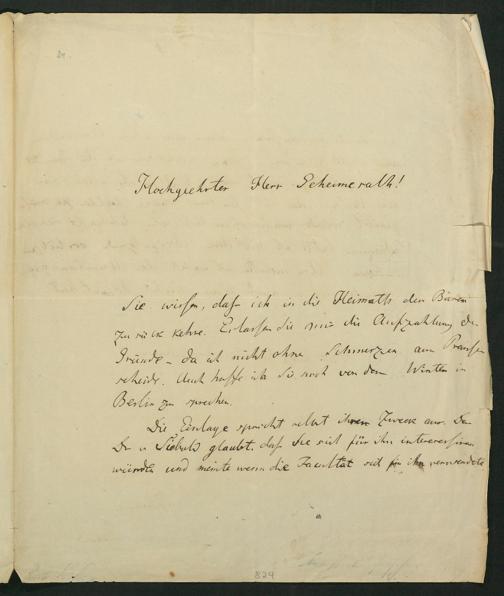 Hochgeehrter Herr Geheimerath!
Sie wissen, daß ich in die Heimath den Bären
zurück kehre. Erlassen Sie mir die Aufzählung der
Gründe – da ich nicht ohne Schmerzen aus Preußen
scheide. Auch hoffe ich Sie noch vor dem Winter in
Berlin zu sprechen.
Die Einlage spricht selbst ihren Zweck aus. Der
Dr v Siebold glaubt, daß Sie sich für ihn interessiren
würden und meinte wenn die Facultät sich für ihn verwendete
824